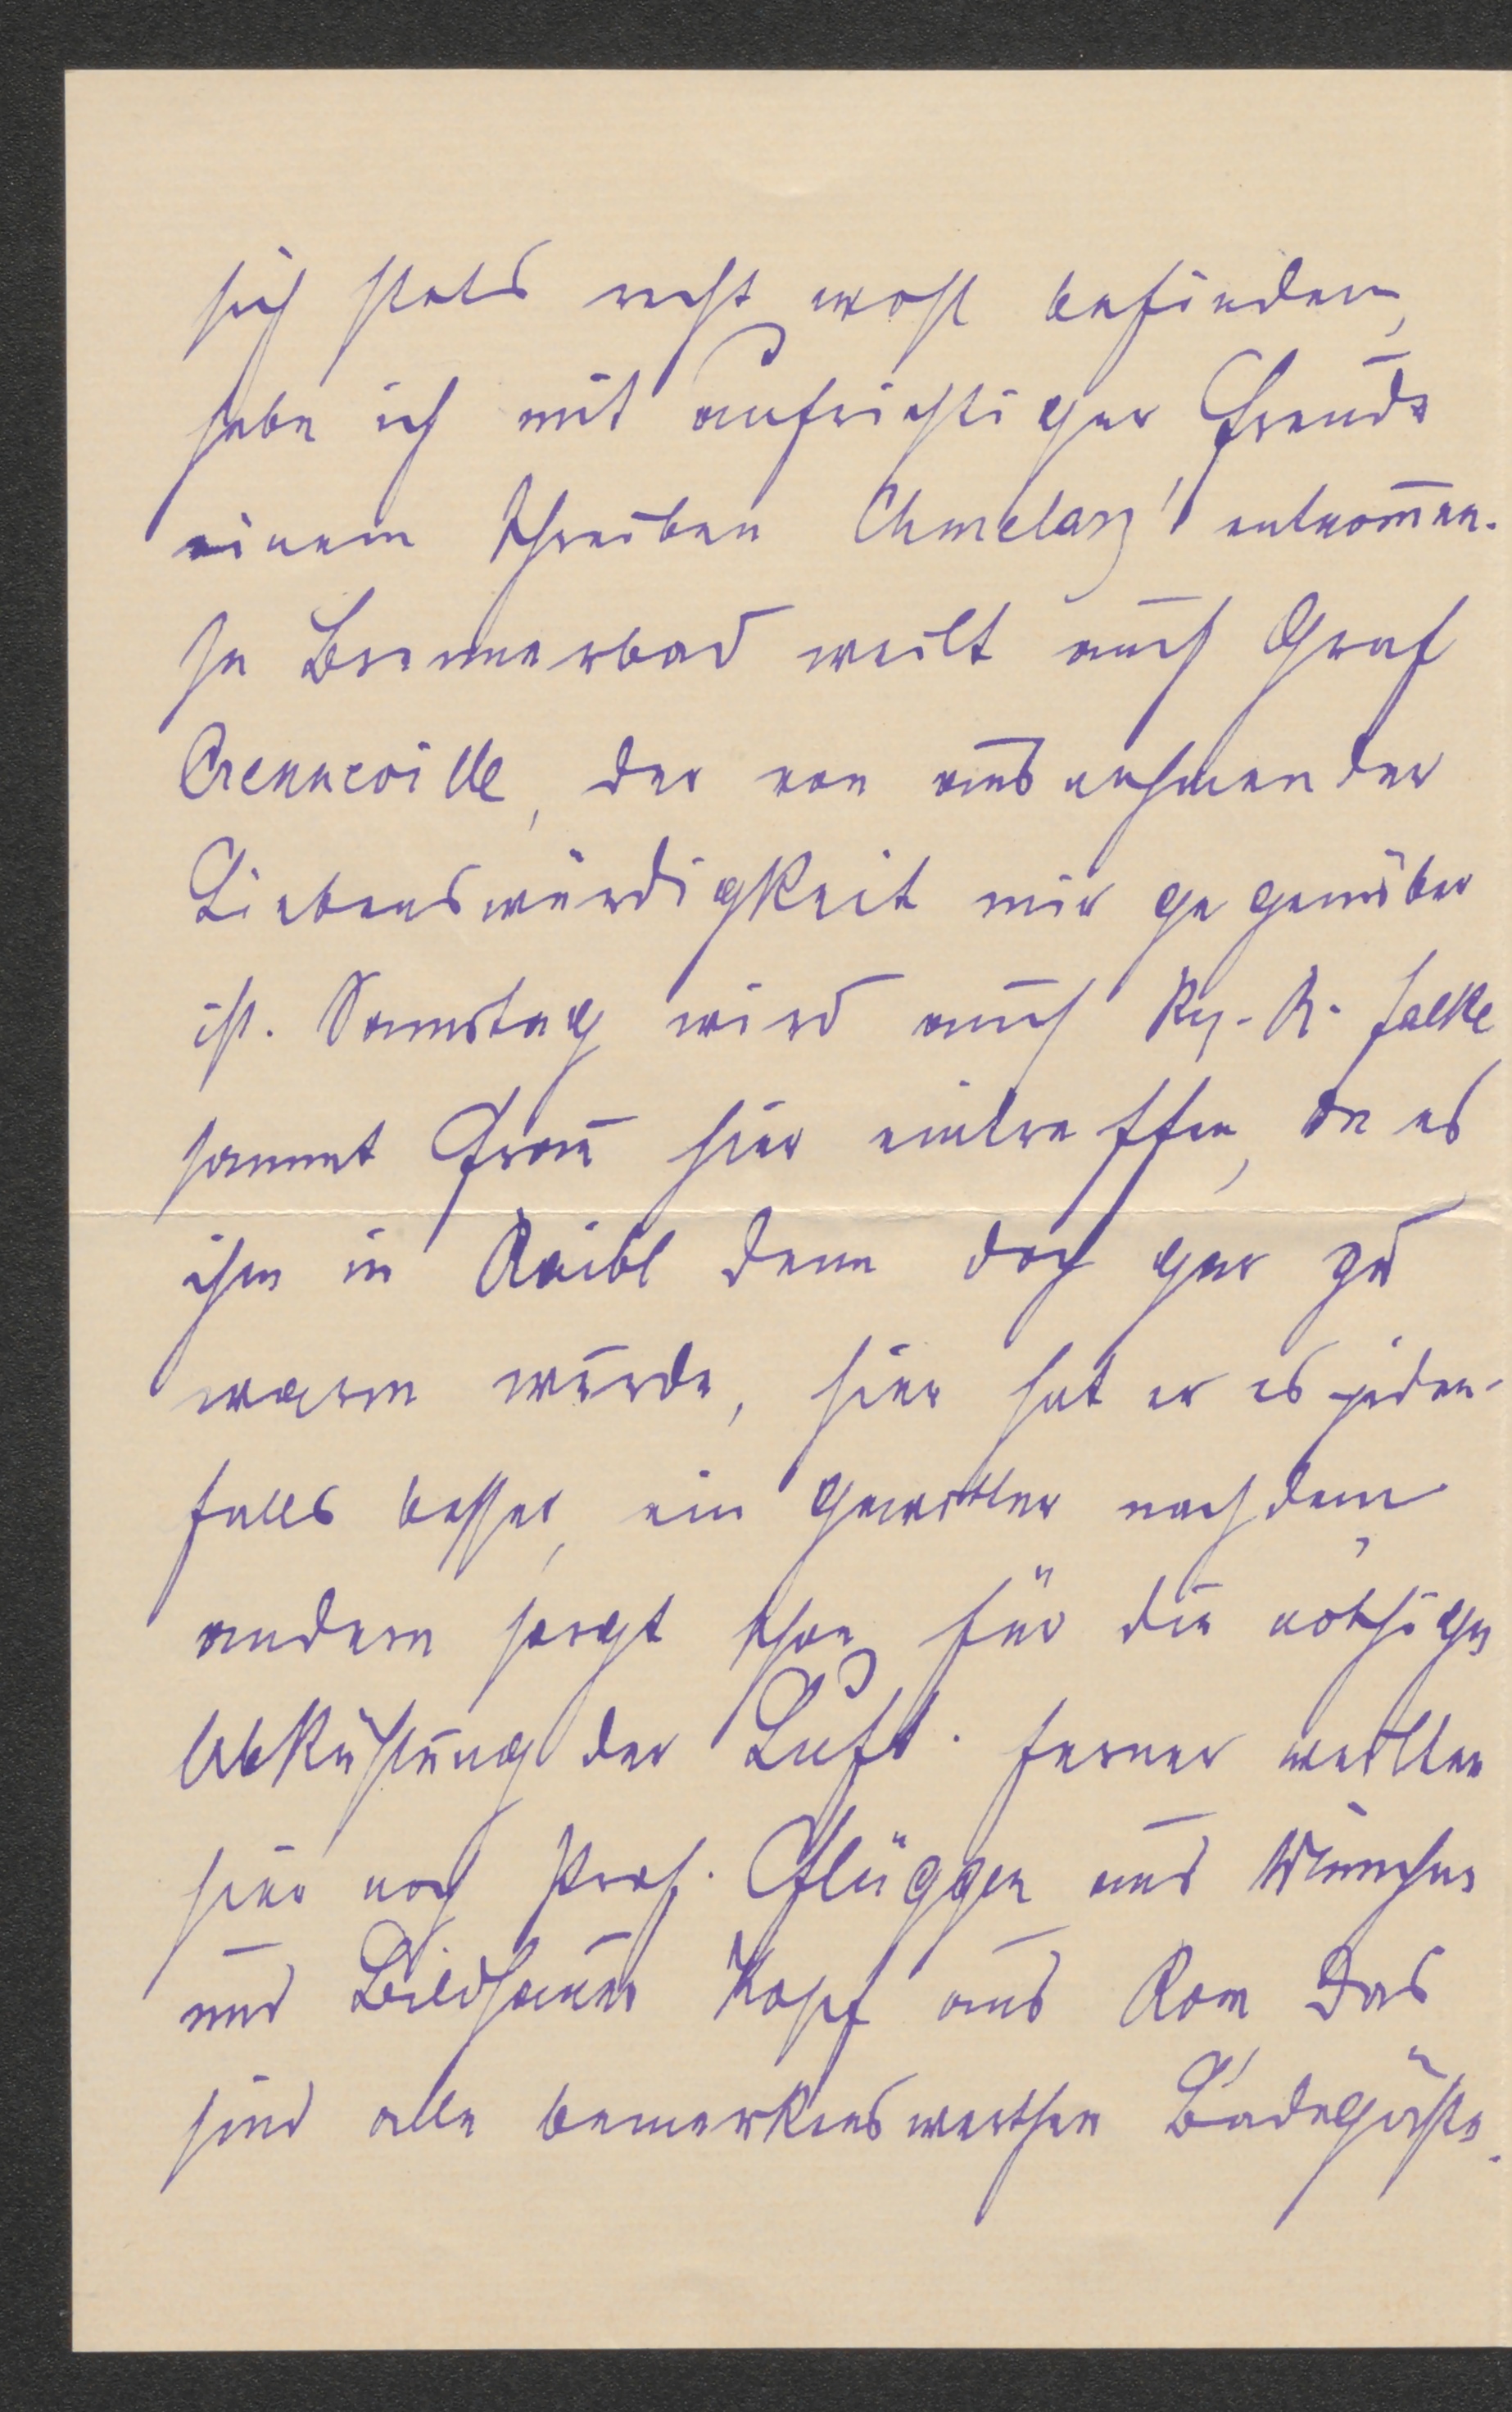 sich stets recht wohl befinden,
habe ich mit aufrichtiger Freude
einem Schreiben Chmelarz' entnom̅en.
In Brennerbad weilt auch Graf
Crenneville, der von ausnehmender
Liebenswürdigkeit mir gegenüber
ist. Samstag wird auch Rg. R. Falke
sammt Frau hier eintreffen, da es
ihm in Raibl denn doch gar zu
warm wurde, hier hat er es jeden-
falls besser, ein Gewitter nach dem
andern sorgt schon für die nöthige
Abkühlung der Luft. Ferner weilten
hier noch Prof. Flüggen aus München
und Bildhauer Kopf aus Rom. Das
sind alle bemerkenswerthen Badegäste.